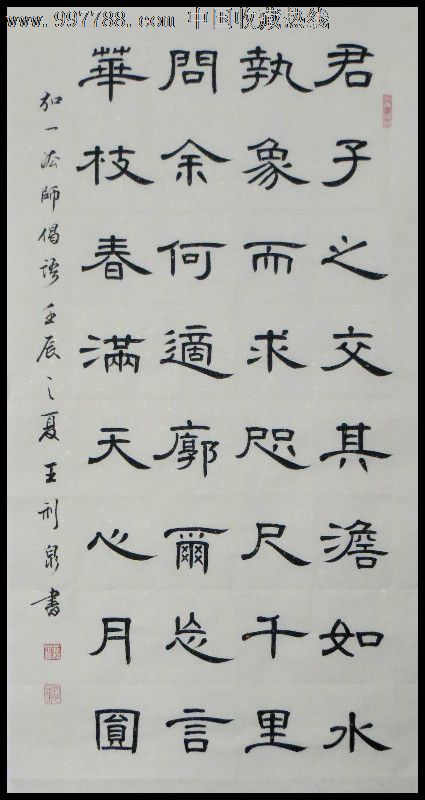 www.997788.com 中国收藏热线
君子之交其澹如水
執象而求咫尺千里
問余何適廓爾忘言
華枝春滿天心月圓
弘一法師偈語壬辰之夏王利泉書